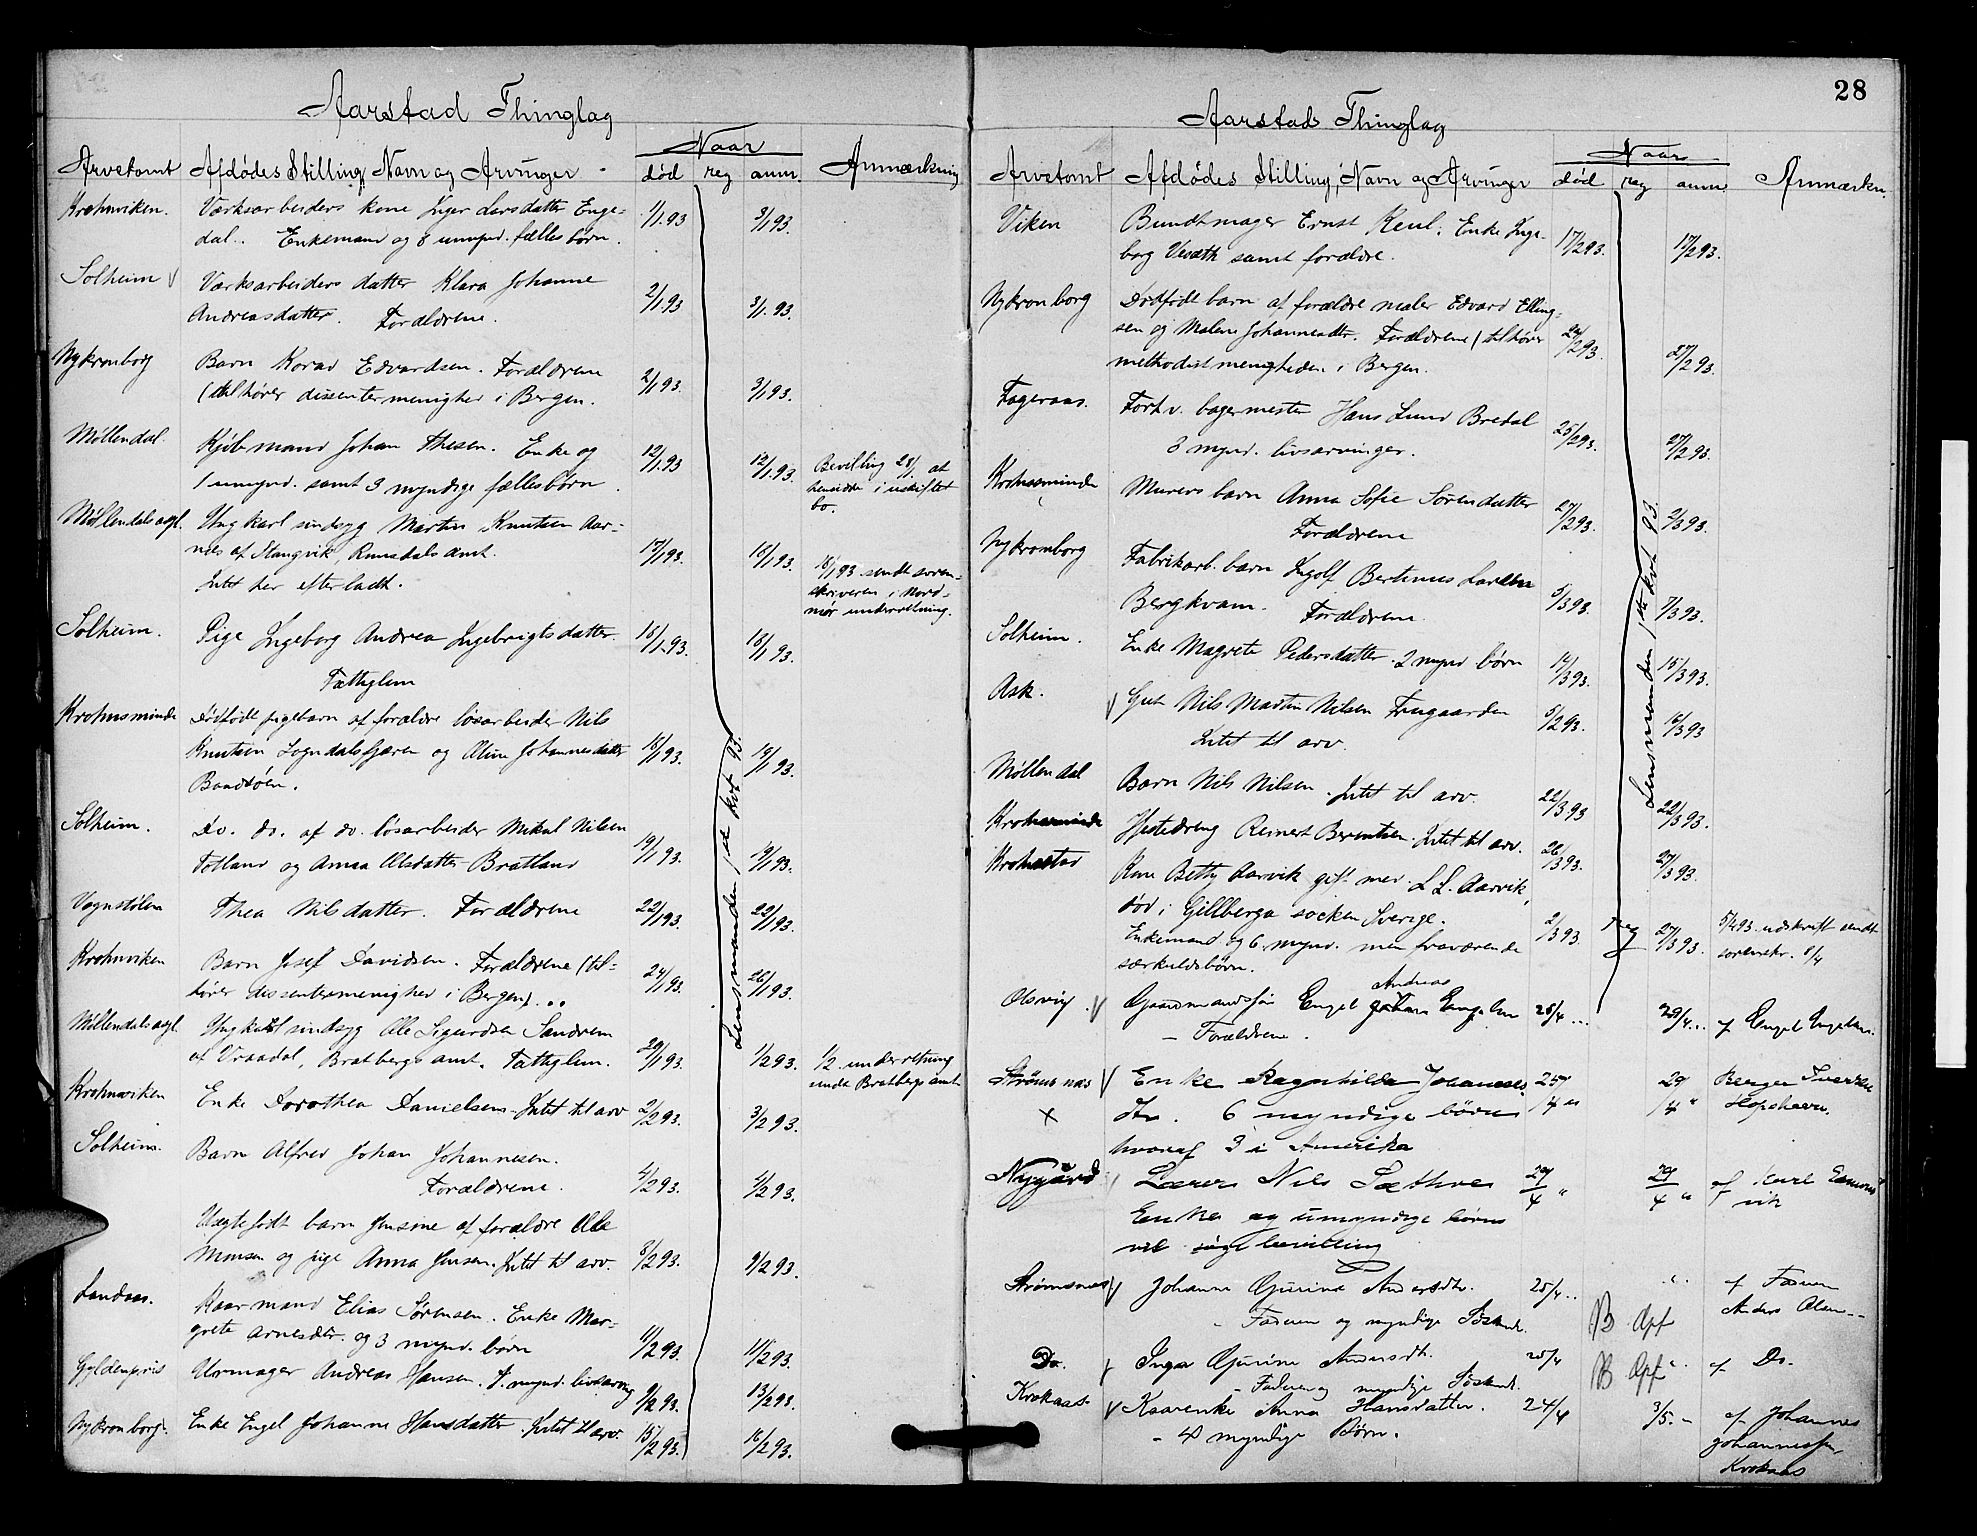 Aarstad Thinglag
Arvetomt Afdødes Stilling, Navn og Arvinger Naar død reg anm. Anmærkning
Krohnviken. Værksarbeiders kone Inger Larsdatter Enge- 1/1.93 3/1 93.
dal. Enkemand og 8 umynd. fælles børn.
Solheim Værksarbeiders datter Klara Johanne 2/1.93 3/1.93.
Andreasdatter. Forældrene.
Nykronborg Barn Korad Edvardsen. Forældrene 2/1 93. 3/1 93.
(tilhører dissentermenighed i Bergen.
Møllendal Kjøbmand Johan Thesen. Enke og 12/1.93 12/1.93. Bevilling 28/1 at
1 umynd. samt 3 myndige fællesbørn. hensidde i uskiftet
bo.
Møllendals asyl. Ungkarl sindsyg Martin Knutsen Aar- 17/1 93. 18/1 93.
nes af Stangvik, Romsdals amt. 18/1 93 sendt soren-
Intet her efterladt. skriveren i Nord-
mør underretning.
Solheim. Pige Ingeborg Andrea Ingebrigtsdatter. 18/1.93. 18/1 93.
Fattiglem
Krohnsminde Dødfødt pigebarn af forældre løsarbeider Nils
Knutsen Sogndalsfjæren og Oline Johannesdatter 18/1 93. 19/1 93.
Bondøen.
Solheim. Do. do. af do. løsarbeider Mikal Nilsen 19/1 93. 19/1 93.
Totland og Anna Olsdatter Bratland
Vognstølen Thea Nilsdatter. Forældrene 22/1 93. 22/1 93.
Krohnviken Barn Josef Davidsen. Forældrene (til- 24/1 93. 26/1 93.
hører dissentermenighed i Bergen).
Møllendals asyl. Ungkarl sindsyg Ole Sigurdsen Sandrem 29/1 93. 1/2 93. 1/2 underretning
af Vraadal, Bratbergs amt. Fattiglem. sendt Bratbergs amt
Krohnviken Enke Dorothea Danielsen. Intet til arv 2/2 93. 3/2 93.
Solheim. Barn Alfred Johan Johannesen. 4/2 93. 4/2 93.
Forældrene.
Uægtefødt barn Jensine af forældre Ole
Monsen og pige Anna Jensen. Intet til arv. 8/2 93. 9/2 93.
Landaas. Kaarmand Elias Sørensen. Enke Mar-
grete Arnesdtr. og 3 mynd. børn 11/2 93. 11/2 93.
Gyldenpris Urmager Andreas Hansen. 1 mynd. livsarving 9/2 93. 13/2 93.
Nykronborg. Enke Engel Johanne Hansdatter. Intet til arv. 15/2 93. 16/2 93.
Lensmanden 1ste kvt 93.
28
Aarstad Thinglag
Arvetomt Afdødes Stilling, Navn og Arvinger Naar død reg anm. Anmærkn.
Viken Bundtmager Ernst Keul. Enke Inge- 17/2 93. 17/2 93.
borg samt forældre.
Nykronborg Dødfødt barn af forældre maler Edvard Elling-
sen og Malene Johannesdtr. Forældrene (tilhører 24/2 93. 27/2 93.
methodistmenigheden i Bergen.
Fageraas. Forhv. bagermester Hans Lund Bredal 25/2 93. 27/2 93.
3 mynd. livsarvinger.
Krohnsminde Murers barn Anna Sofie Sørensdatter 27/2 93. 2/3 93.
Forældrene
Nykronborg Fabrikarb. barn Ingolf Bertinus Larsen
Bergkvam. Forældrene. 5/3 93. 7/3 93.
Solheim. Enke Magrete Pedersdatter 2 mynd børn 14/3 93. 15/3 93.
Ask. Gut Nils Martin Nilsen Frugaarden 5/2 93. 16/3 93
Intet til arv.
Møllendal Barn Nils Nilsen. Intet til arv. 22/3 93 22/3 93.
Krohnsminde Hestedreng Reinert Berentsen. Intet til arv. 26/3 93. 27/3 93.
Krohnstad Kone Betty Aarvik gift med L. L. Aarvik,
død i Gillberga socken Sverige. 2/3 93. reg 27/3 93. 5/4 93. udskrift sendt
Enkemand og 6 mynd. men fraværende sorenskr. 8/4
særkuldsbørn.
Lensmanden 1ste kvt 93.
Andreas
Olsvig. Gaardmandssøn Engel Johan Engelsen 28/4 29/4 af Engel Engelsen.
– Forældrene.
Strømsnæs Enke Ragnhilda Johannes 25/4 " 29/4 " Berger
X dtr. 6 myndige børn Hopshavn.
hvoraf 3 i Amerika
Nygård Lærer Nils Sæthre 29/4 " 29/4 " af Karl
Enke og umyndige børn vik
vil søge bevilling
Strømsnæs Johanne Gurine Andersdtr. 25/4 " af Faderen
– Faderen og myndige Søskend. B Opf Anders Olsen
Do. Inga Gurine Andersdtr. 25/4 B Opf " af Do.
– Faderen og myndige Søskend.
Krokaas Kaarenke Anna Hansdatter. 24/4 3/5. af Johannes
– 4 myndige Børn. Johannessen
Krokaas